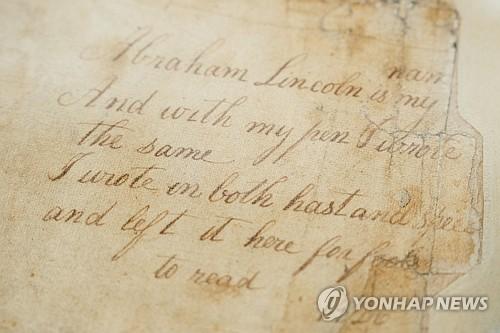 nam
Abraham Lincoln is my
And with my pen I wrote
the same
I wrote in both hast and speed
and left it here for fools
to read
YONHAP NEWS